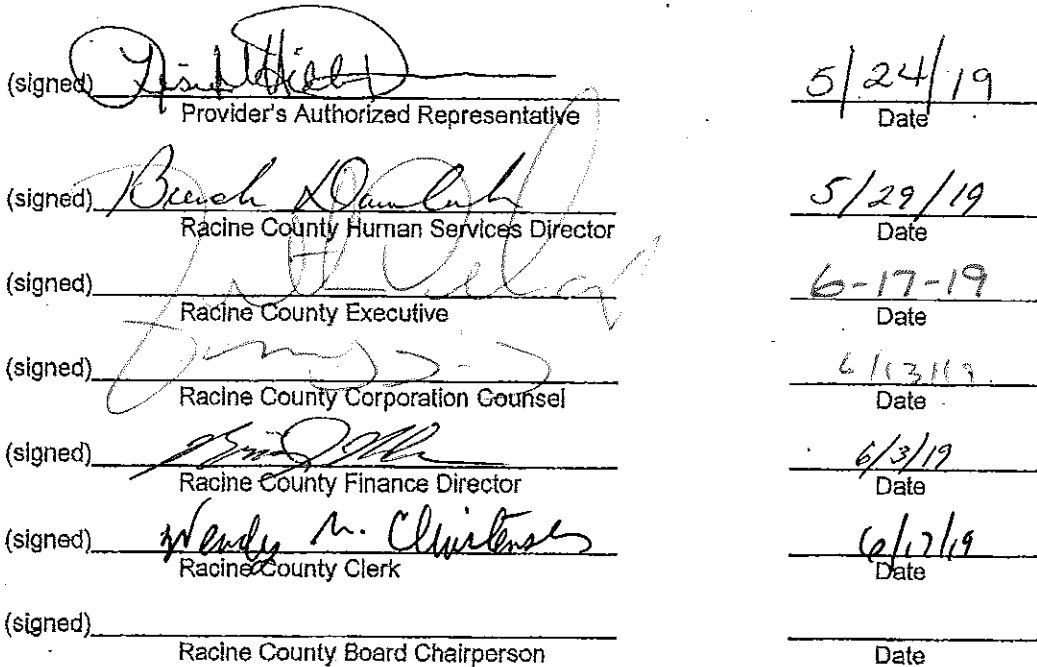 (signed) 5/24/19
Provider's Authorized Representative Date
(signed) 5/29/19
Racine County Human Services Director Date
(signed) 6-17-19
Racine County Executive Date
(signed) 6/13/19
Racine County Corporation Counsel Date
(signed) 6/3/19
Racine County Finance Director Date
(signed) Wendy M. Christensen 6/17/19
Racine County Clerk Date
(signed)
Racine County Board Chairperson Date